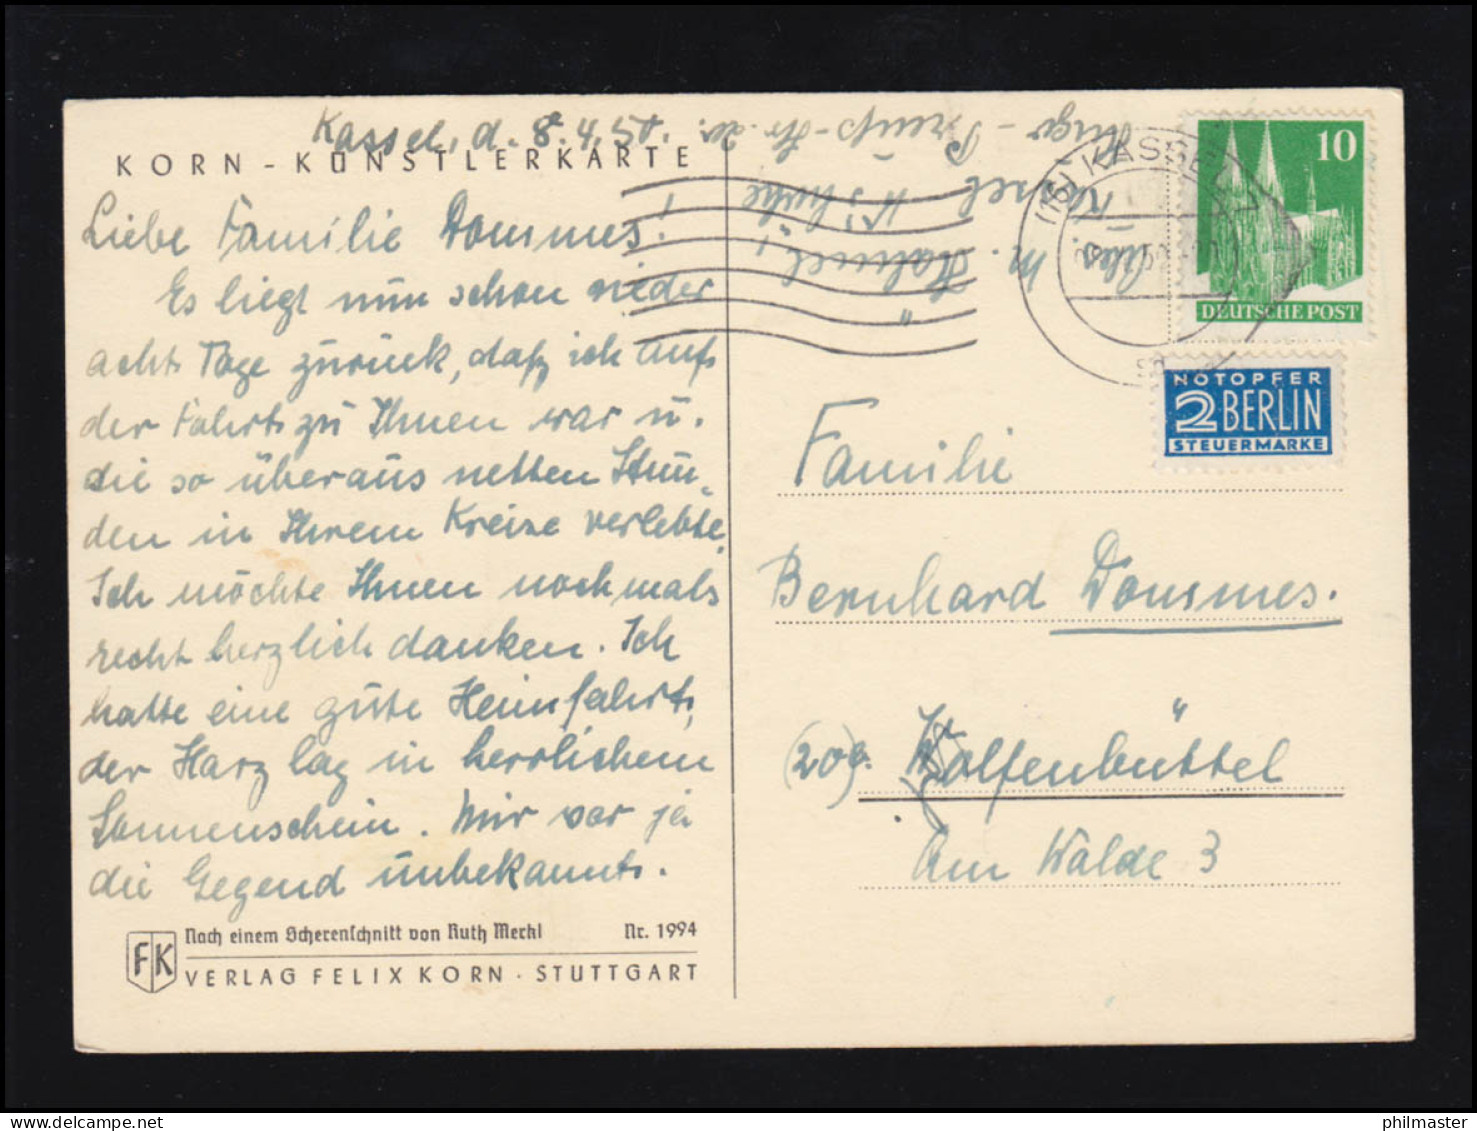 Kassel, d. 8.4.50.
KORN - KÜNSTLERKARTE
Liebe Familie Dommes!
Es liegt nun schon wieder
acht Tage zurück, daß ich auf
der Fahrt zu Ihnen war u.
die so überaus netten Stun-
den in Ihrem Kreise verlebte.
Ich möchte Ihnen nochmals
recht herzlich danken. Ich
hatte eine gute Heimfahrt,
der Harz lag in herrlichem
Sonnenschein. Mir war ja
die Gegend unbekannt.
Nach einem Scherenschnitt von Ruth Merkl Nr. 1994
FK
VERLAG FELIX KORN · STUTTGART
(16) KASSEL 7
10
DEUTSCHE POST
NOTOPFER
2 BERLIN
STEUERMARKE
Familie
Bernhard Dommes.
(20b) Wolfenbüttel
Am Walde 3
philmaster